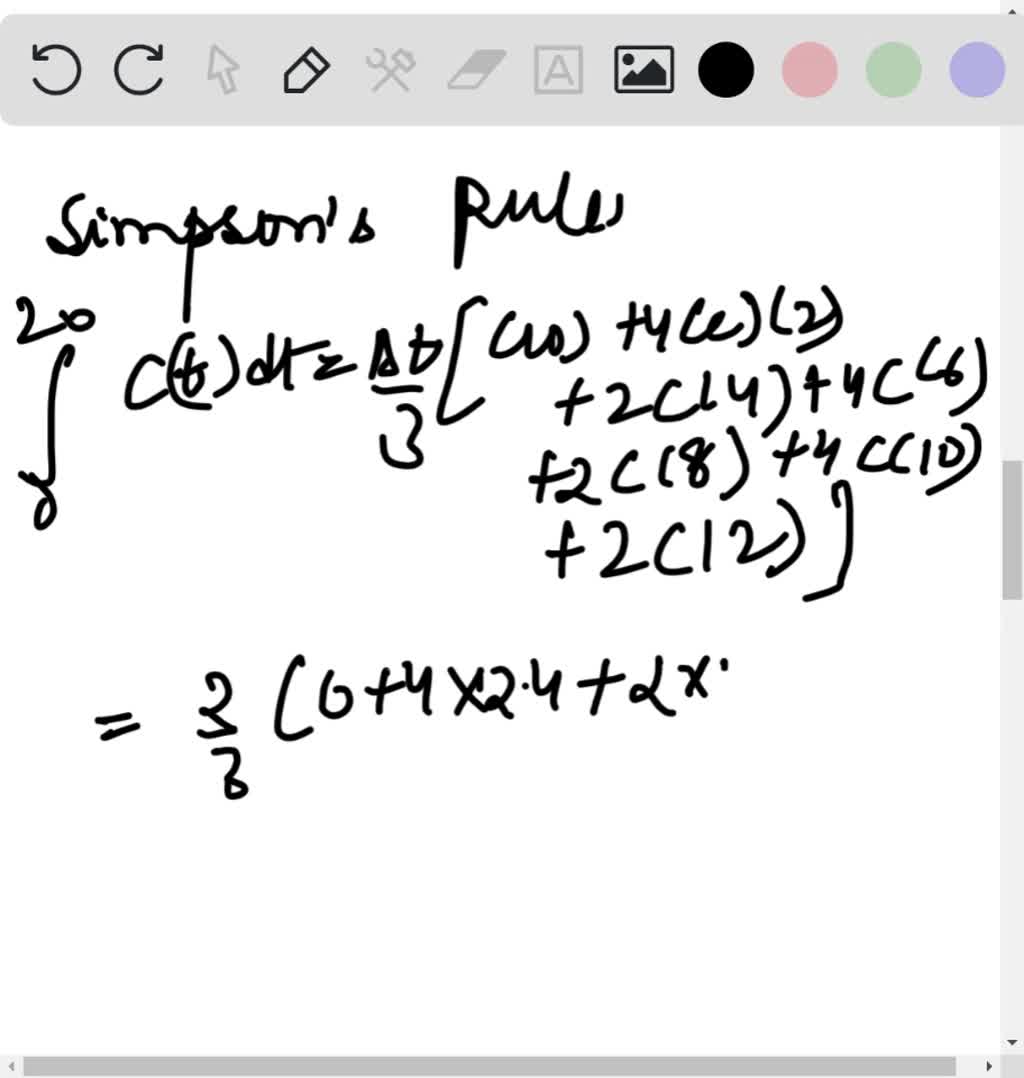 Simpson's Rules
∫ 20 0 C(t)dt = Δt/3 [C(0) + 4C(2)(2)
+ 2C(4) + 4C(6)
+ 2C(8) + 4C(10)
+ 2C12)]
= 2/3 (0 + 4 × 2.4 + 2 ×